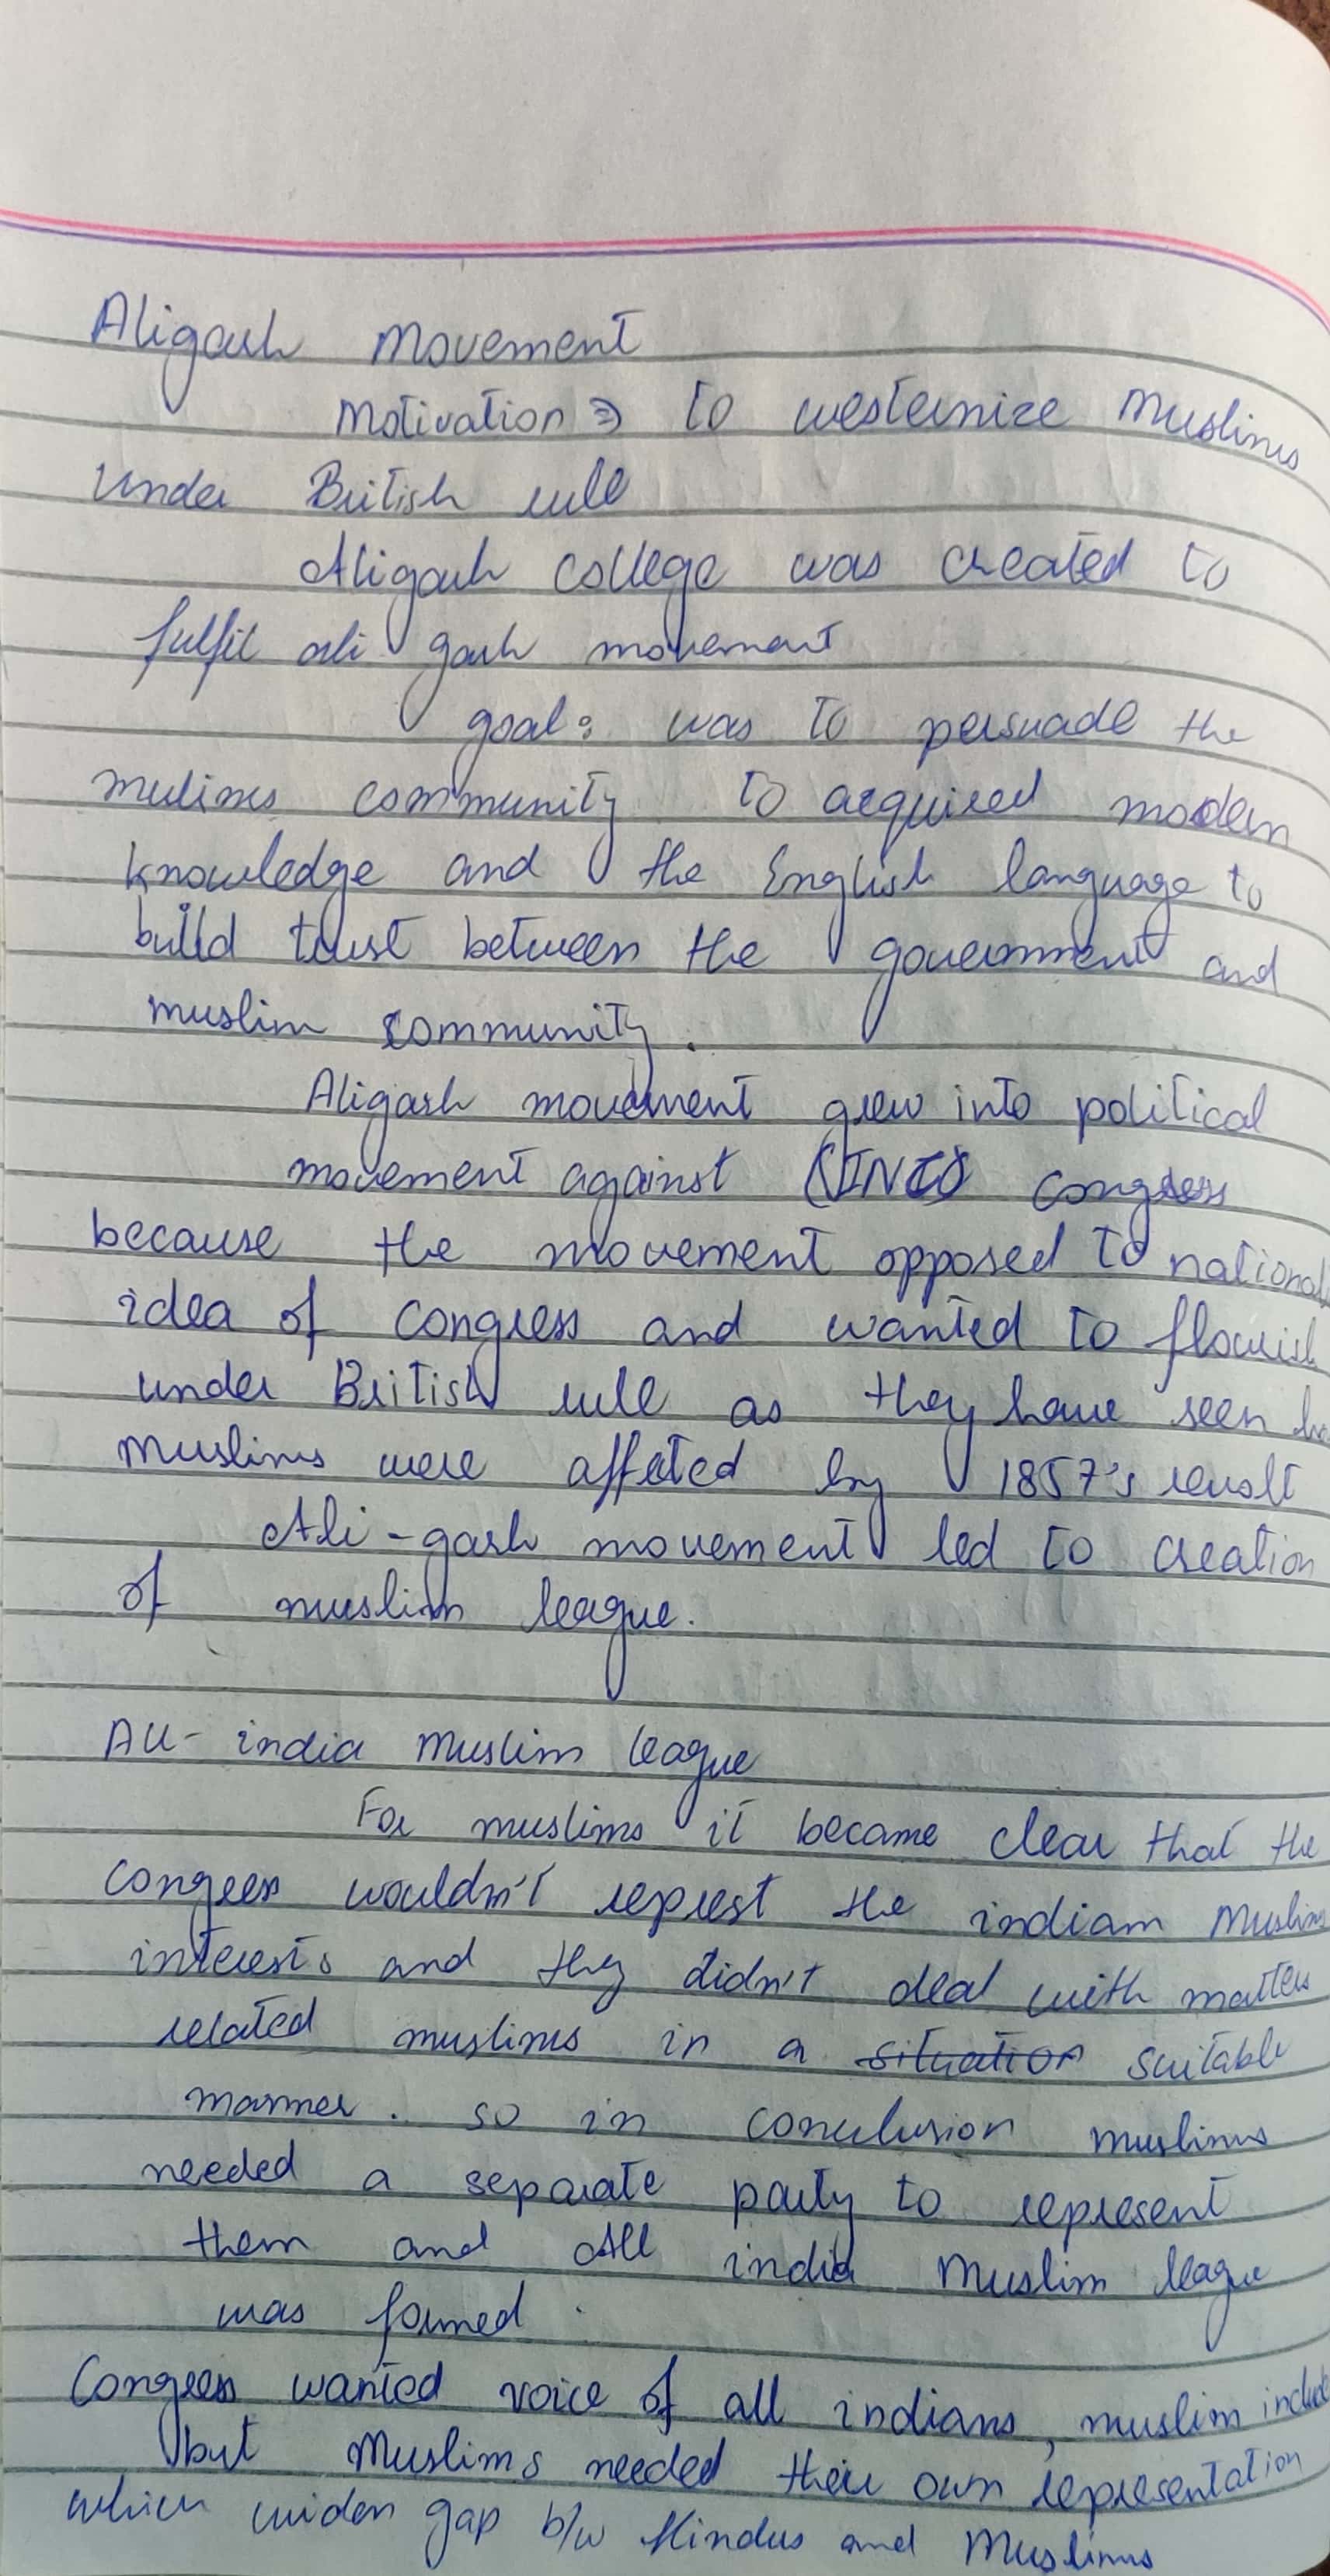 Aligarh Movement
Motivation ⇒ to westernize Muslims
under British rule
Aligarh college was created to
fulfil ali garh movement
goal: was to persuade the
mulims community to acquired modern
knowledge and the English language to
build trust between the government and
muslim community.
Aligarh movement grew into political
movement against (INC) congress
because the movement opposed to national
idea of congress and wanted to flourish
under British rule as they have seen
Muslims were affeted by 1857's revolt
Ali-garh movement led to creation
of muslim league.
All-india Muslim league
For muslims it became clear that the
congress wouldn't represt the indian Muslim
interests and they didn't deal with matters
related muslims in a situation suitable
manner. so in conculusion muslims
needed a separate party to represent
them and All india Muslim league
was formed.
Congress wanted voice of all indians, muslim
but Muslims needed their own representation
which widen gap b/w Hindus and Muslims